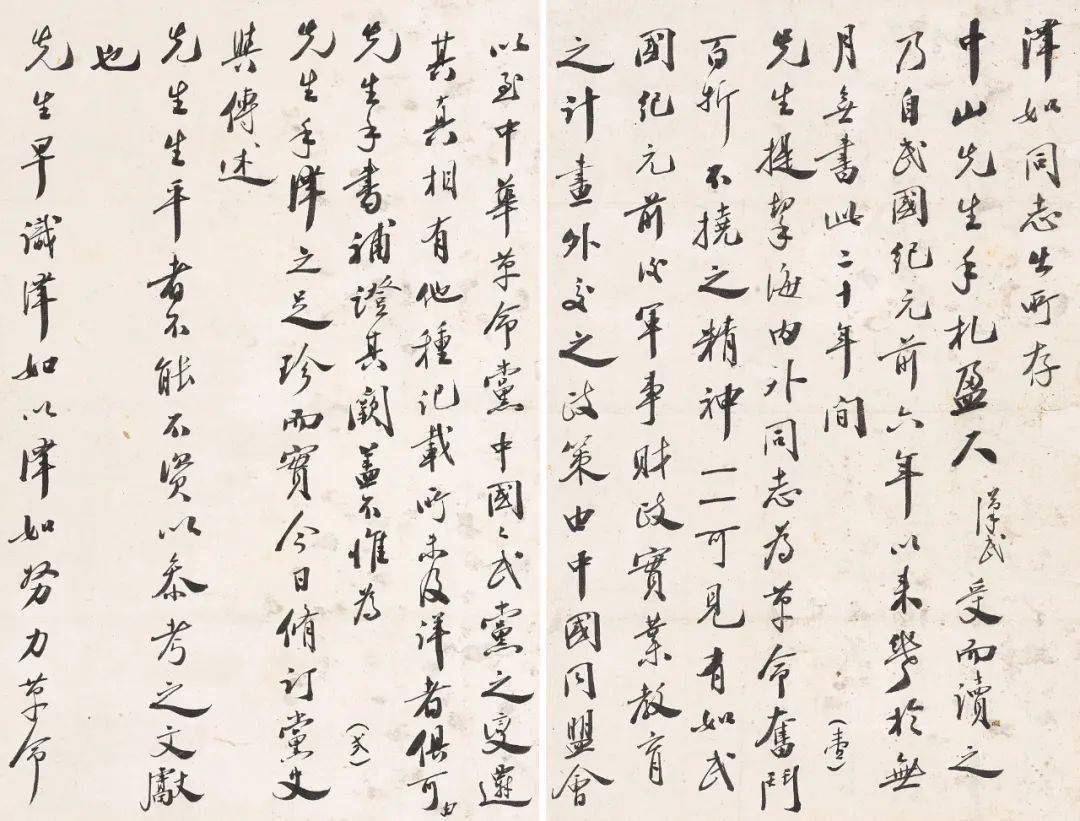 澤如同志出所存
中山先生手札盈尺漢民受而讀之
乃自民國紀元前六年以來幾於無
月無書此二十年間(壹)
先生提挈海內外同志為革命奮鬥
百折不撓之精神一一可見有如民
國紀元前後軍事財政實業教育
之計畫外交之政策由中國同盟會
以至中華革命黨中國々民黨之變遷
其真相有他種記載所未及詳者俱可由
先生手書補證其闕蓋不惟為(弍)
先生手澤之足珍而實今日脩訂黨史
與傳述
先生生平者不能不資以參考之文獻
也
先生早識澤如以澤如努力革命